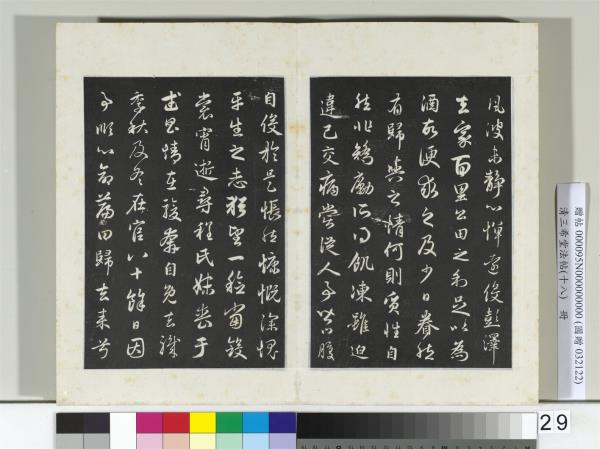 風波未靜心憚遠役彭澤
去家百里公田之利足以為
酒故便求之及少日眷然
有歸與之情何則質性自
然非矯勵所得飢凍雖迫
違己交病嘗從人事皆口腹
自役於是悵然慷慨深愧
平生之志猶望一稔當斂
裳宵逝尋程氏妹喪于
武昌情在駿奔自免去職
季秋及冬在官八十餘日因
事順心命篇曰歸去來兮
贈帖 000095N000000000 (國贈 032122)
清三希堂法帖(十八) 冊
29